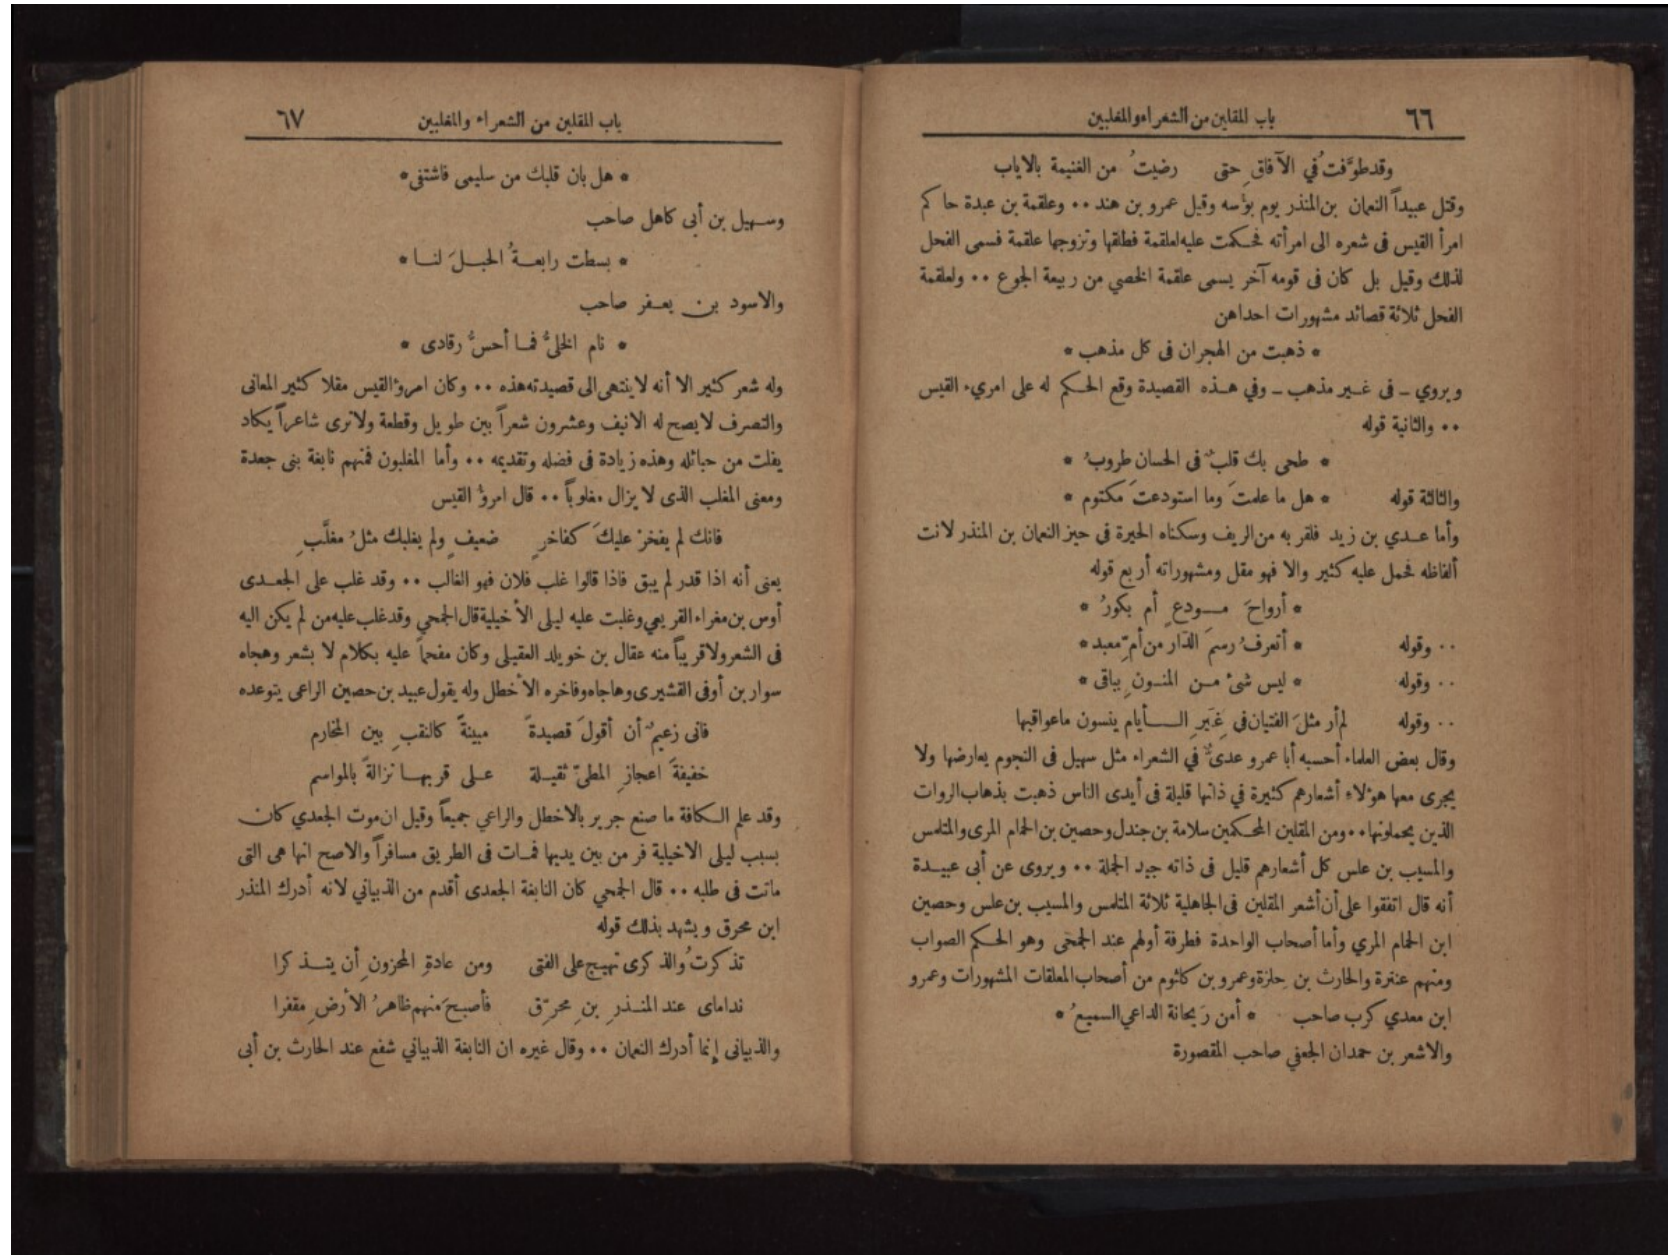 ٦٦
باب المقلين من الشعراء والمغلبين
وقد طوَّفتُ في الآفاقِ حتى رضيتُ من الغنيمة بالاياب
وقتل عبيداً النعمان بن المنذر يوم بؤسه وقيل عمرو بن هند ٠٠ وعلقمة بن عبدة حاكم
امرأ القيس فى شعره الى امرأته فحكمت عليه لعلقمة فطلقها وتزوجها علقمة فسمى الفحل
لذلك وقيل بل كان فى قومه آخر يسمى علقمة الخصي من ربيعة الجوع ٠٠ ولعلقمة
الفحل ثلاثة قصائد مشهورات احداهن
* ذهبت من الهجران فى كل مذهب *
ويروي ـ فى غير مذهب ـ وفي هذه القصيدة وقع الحكم له على امريء القيس
٠٠ والثانية قوله
* طحى بك قلبٌ فى الحسان طروبُ *
والثالثة قوله * هل ما علمتَ وما استودعتَ مكتوم *
وأما عدي بن زيد فلقربه من الريف وسكناه الحيرة في حيز النعمان بن المنذر لانت
ألفاظه فحمل عليه كثير والا فهو مقل ومشهوراته أربع قوله
* أرواحَ مودعٍ أم بكورُ *
٠٠ وقوله * أتعرفُ رسمَ الدّار من أمّ معبد *
٠٠ وقوله * ليس شئ من المنونِ بباقى *
٠٠ وقوله لم أر مثلَ الفتيان فى غِيَرِ الأيام ينسون ما عواقبها
وقال بعض العلماء أحسبه أبا عمرو عدىٌّ في الشعراء مثل سهيل فى النجوم يعارضها ولا
يجرى معها هؤلاء أشعارهم كثيرة في ذاتها قليلة فى أيدى الناس ذهبت بذهاب الروات
الذين يحملونها ٠٠ ومن المقلين المحكمين سلامة بن جندل وحصين بن الحمام المرى والمتلمس
والمسيب بن علس كل أشعارهم قليل فى ذاته جيد الجملة ٠٠ ويروى عن أبى عبيدة
أنه قال اتفقوا على أن أشعر المقلين فى الجاهلية ثلاثة المتلمس والمسيب بن علس وحصين
ابن الحمام المري وأما أصحاب الواحدة فطرفة أولهم عند الجمحى وهو الحكم الصواب
ومنهم عنترة والحارث بن حِلزة وعمرو بن كلثوم من أصحاب المعلقات المشهورات وعمرو
ابن معدي كرب صاحب * أمن رَيحانة الداعي السميعُ *
والاشعر بن حمدان الجعفي صاحب المقصورة
باب المقلين من الشعراء والمغلبين
٦٧
* هل بان قلبك من سليمى فاشتفى *
وسهيل بن أبى كاهل صاحب
* بسطت رابعةُ الحبلَ لنا *
والاسود بن يعفر صاحب
* نام الخلىُّ فما أحسُّ رقادى *
وله شعر كثير الا أنه لا ينتهى الى قصيدته هذه ٠٠ وكان امرؤ القيس مقلا كثير المعانى
والتصرف لا يصح له الا نيف وعشرون شعراً بين طويل وقطعة ولا ترى شاعراً يكاد
يفلت من حبائله وهذه زيادة فى فضله وتقديمه ٠٠ وأما المغلبون فمنهم نابغة بنى جعدة
ومعنى المغلب الذى لا يزال مغلوباً ٠٠ قال امرؤ القيس
فانك لم يفخرْ عليكَ كفاخرٍ ضعيفٍ ولم يغلبك مثلُ مغلَّبِ
يعنى أنه اذا قدر لم يبق فاذا قالوا غلب فلان فهو الغالب ٠٠ وقد غلب على الجعدى
أوس بن مغراء القريعي وغلبت عليه ليلى الأخيلية قال الجمحي وقد غلب عليه من لم يكن اليه
فى الشعر ولا قريباً منه عقال بن خويلد العقيلى وكان مفحماً عليه بكلام لا بشعر وهجاه
سوار بن أوفى القشيرى وهاجاه وفاخره الأخطل وله يقول عبيد بن حصين الراعى يتوعده
فانى زعيمٌ أن أقولَ قصيدةً مبينةً كالنقبِ بين المخارم
خفيفةَ اعجازِ المطىّ ثقيلة على قربها نزالةً بالمواسم
وقد علم الكافة ما صنع جرير بالاخطل والراعي جميعاً وقيل ان موت الجعدي كان
بسبب ليلى الاخيلية فر من بين يديها فمات فى الطريق مسافراً والاصح انها هى التى
ماتت فى طلبه ٠٠ قال الجمحي كان النابغة الجعدى أقدم من الذبياني لانه أدرك المنذر
ابن محرق ويشهد بذلك قوله
تذكرتُ والذكرى تهيج على الفتى ومن عادةِ المحزونِ أن يتذكرا
نداماى عند المنذرِ بنِ محرّقٍ فأصبحَ منهم ظاهرُ الأرضِ مقفرا
والذبيانى إنما أدرك النعمان ٠٠ وقال غيره ان النابغة الذبياني شفع عند الحارث بن أبى